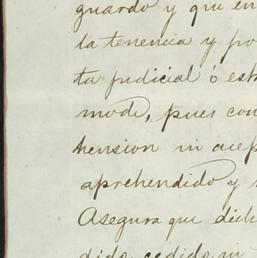 guardo y que en
la tenencia y po
ta judicial ó est
mode, pues con
hension ni acep
aprehendido y
Asegura que dich
dido, cedido, ni